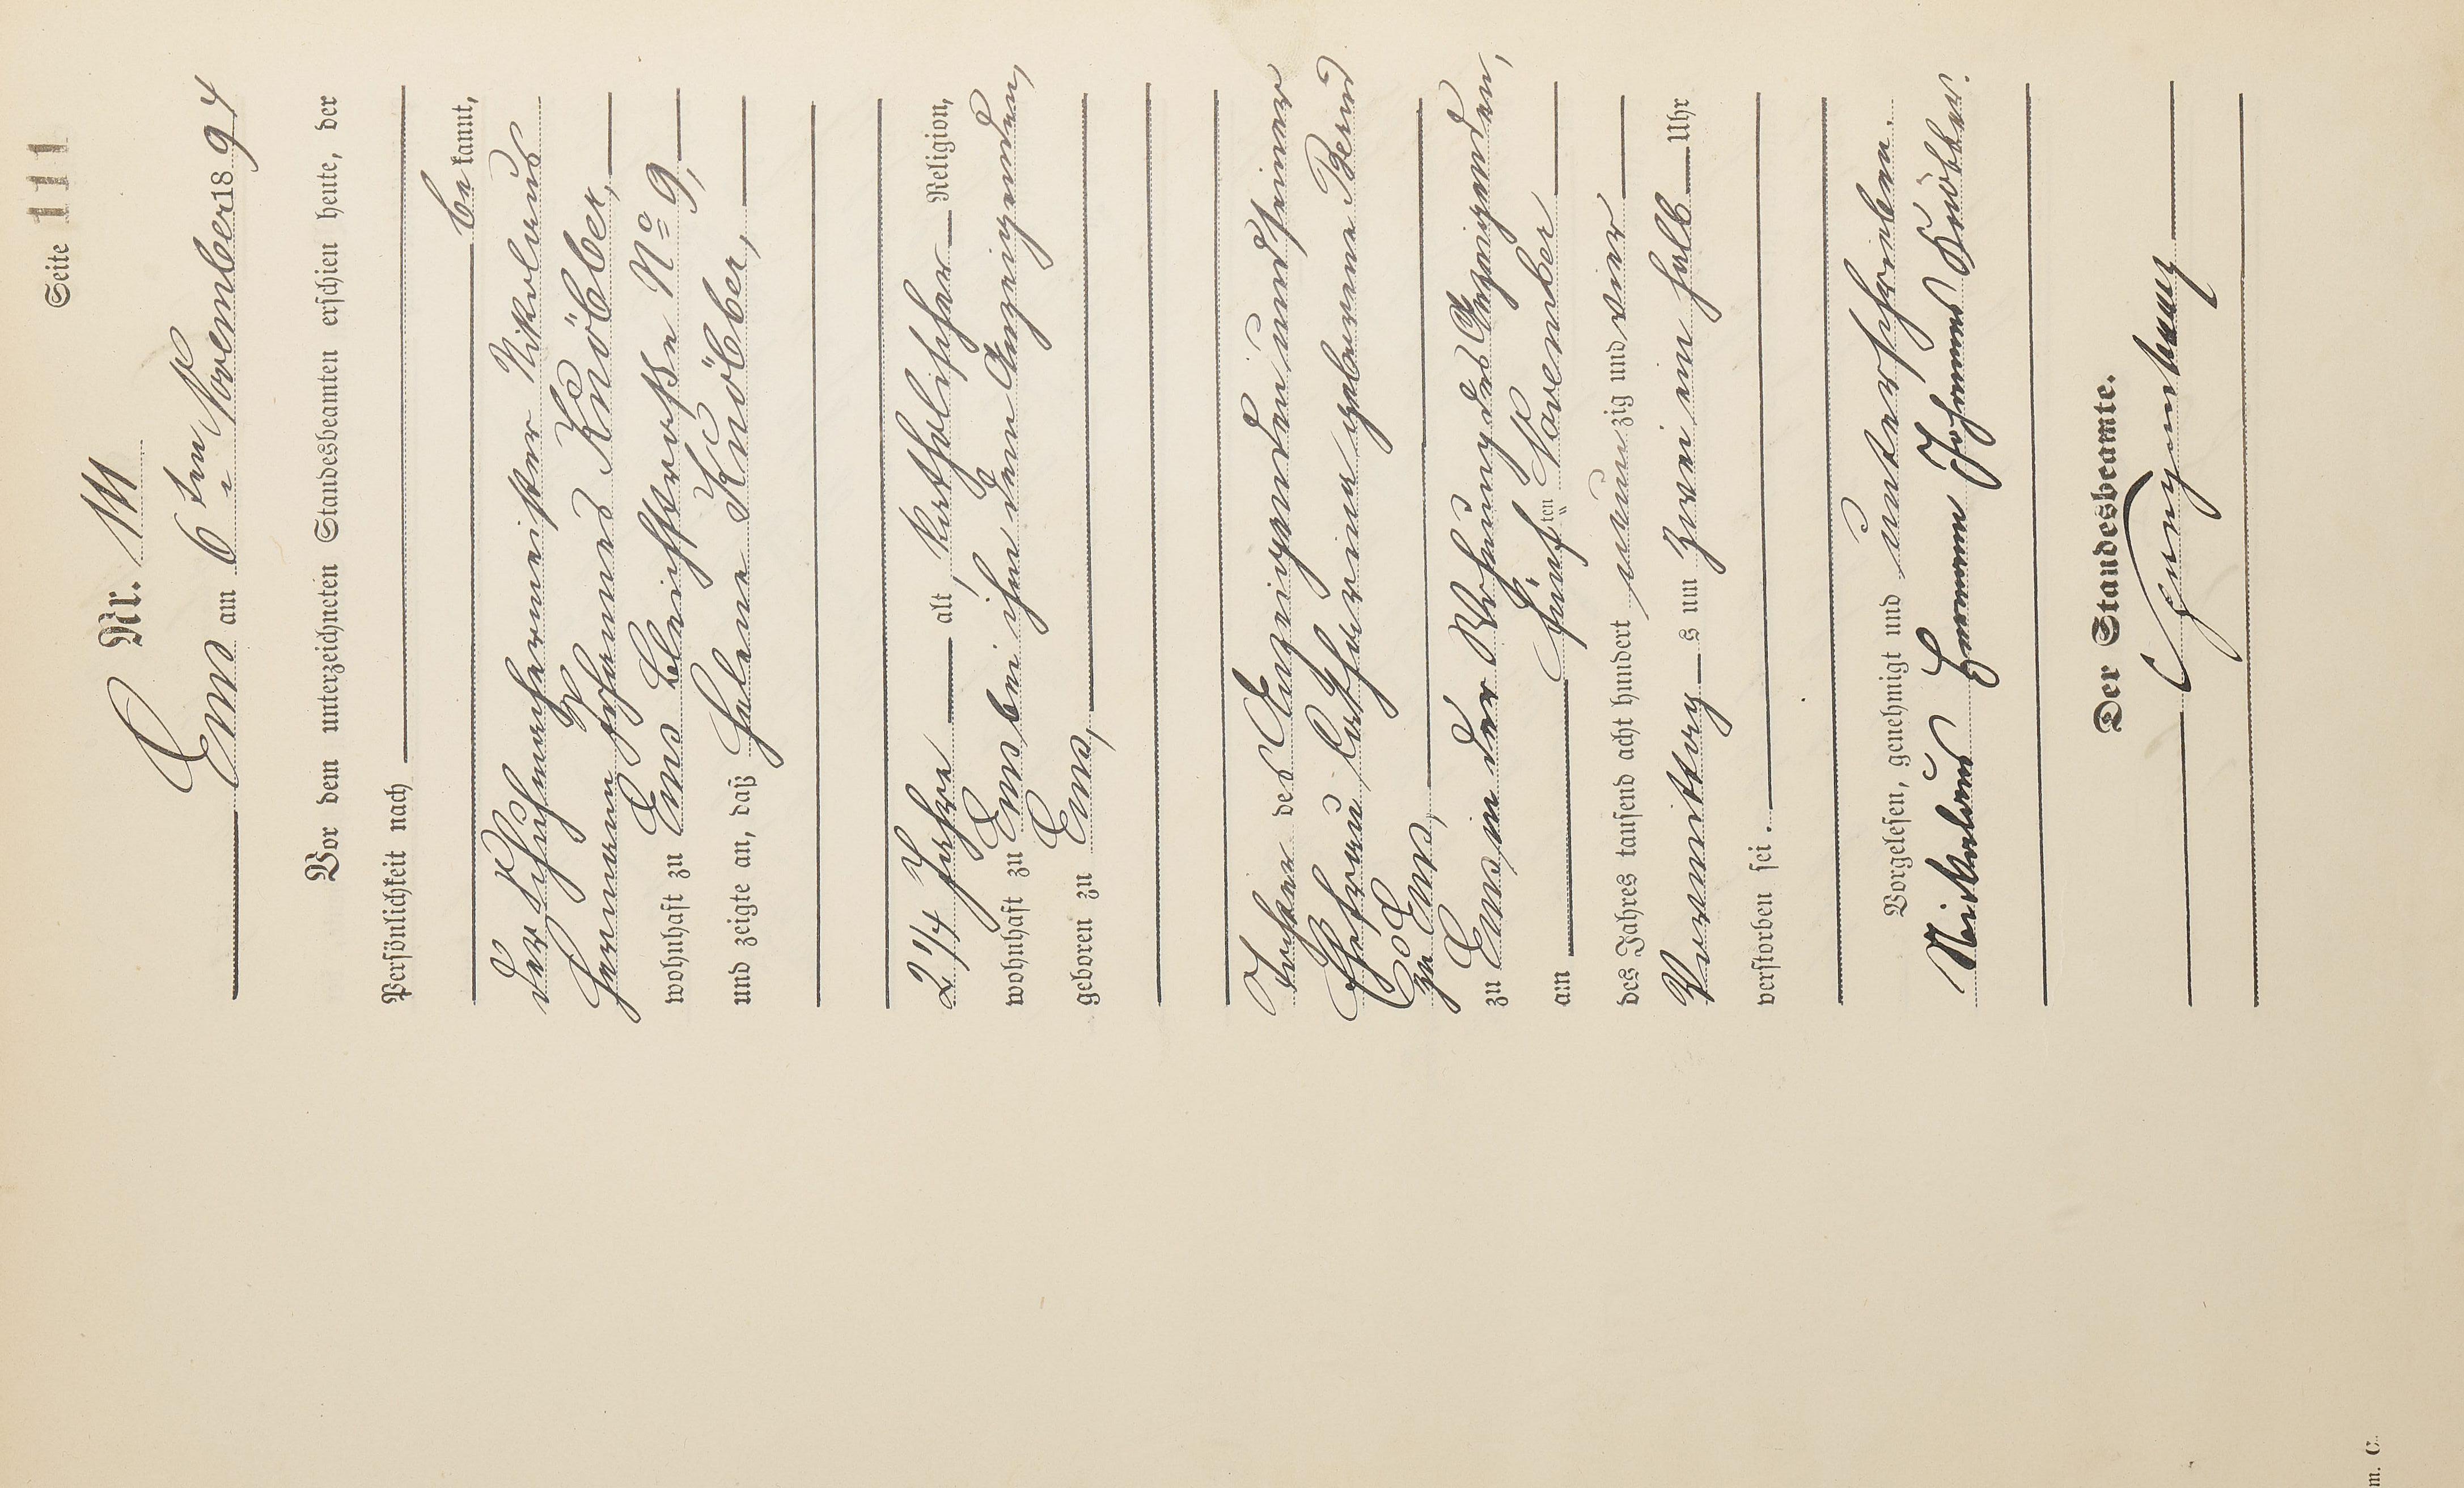 Seite 111
Nr. 111
Ems am 6ten November 1894
Vor dem unterzeichneten Standesbeamten erschien heute, der
Persönlichkeit nach
bekannt,
der Schuhmachermeister Nikolaus
Hermann Johannes Knöbber,
wohnhaft zu Ems Bleichstraße No 9,
und zeigte an, daß Helene Knöbber,
2 1/4 Jahre alt, katholischer Religion,
wohnhaft zu Ems bei ihm dem Anzeigenden,
geboren zu Ems,
Tochter des Anzeigenden und seiner
Ehefrau Catharina geborene
zu Ems,
zu Ems in der Wohnung des Anzeigenden,
am fünften November
des Jahres tausend acht hundert neunzig und vier
Vormittags um zwei ein halb Uhr
verstorben sei.
Vorgelesen, genehmigt und unterschrieben.
Nickolaus Hermann Johannes Knöbber.
Der Standesbeamte.
m. C.